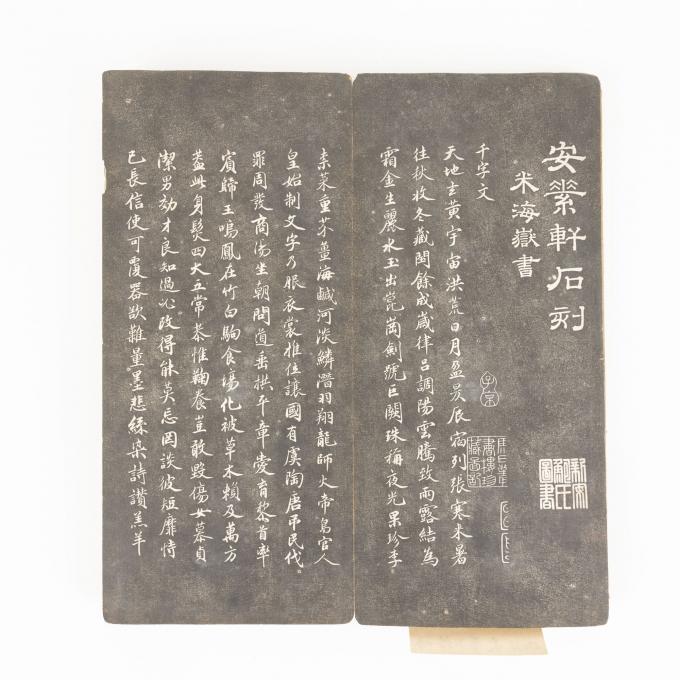 安素軒石刻
米海嶽書
千字文
天地玄黃宇宙洪荒日月盈昃辰宿列張寒來暑
往秋收冬藏閏餘成歲律呂調陽雲騰致雨露結為
霜金生麗水玉出崑崗劍號巨闕珠稱夜光果珍李
柰菜重芥薑海鹹河淡鱗潛羽翔龍師火帝鳥官人
皇始制文字乃服衣裳推位讓國有虞陶唐弔民伐
罪周發商湯坐朝問道垂拱平章愛育黎首率
賓歸王鳴鳳在竹白駒食場化被草木賴及萬方
蓋此身髮四大五常恭惟鞠養豈敢毀傷女慕貞
潔男效才良知過必改得能莫忘罔談彼短靡恃
己長信使可覆器欲難量墨悲絲染詩讚羔羊